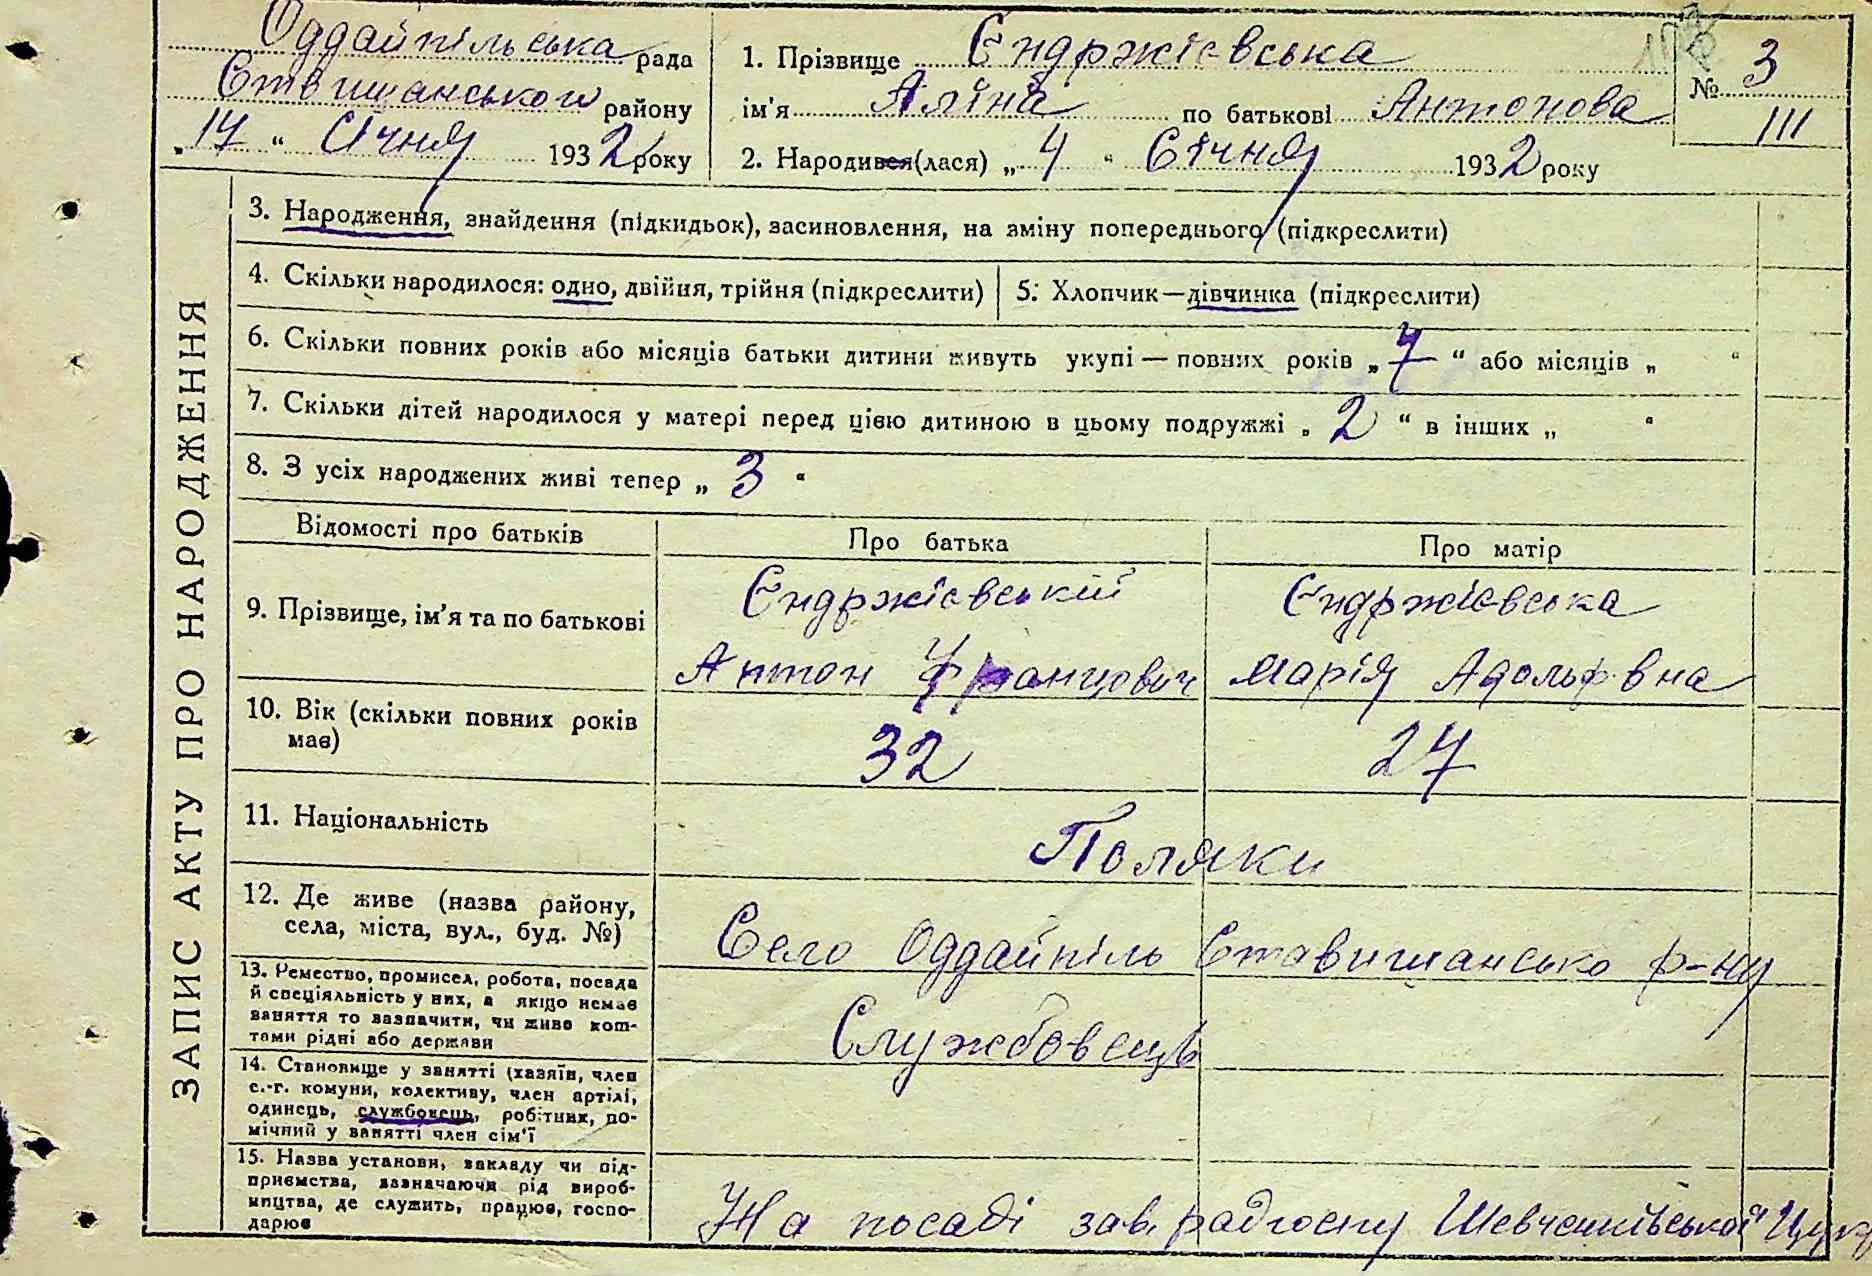 Оддайпільська рада
Ствищанського району
„17“ Січня 1932 року
1. Прізвище Єндржієвська
ім'я Аліна по батькові Антонова
2. Народився(лася) „4“ Січня 1932 року
№ 3
III
ЗАПИС АКТУ ПРО НАРОДЖЕННЯ
3. Народження, знайдення (підкидьок), засиновлення, на зміну попереднього (підкреслити)
4. Скільки народилося: одно, двійня, трійня (підкреслити)
5. Хлопчик—дівчинка (підкреслити)
6. Скільки повних років або місяців батьки дитини живуть укупі — повних років „7“ або місяців „ “
7. Скільки дітей народилося у матері перед цією дитиною в цьому подружжі „2“ в інших „ “
8. З усіх народжених живі тепер „3“
Відомості про батьків
Про батька
Про матір
9. Прізвище, ім'я та по батькові
Єндржієвський
Антон Францович
Єндржієвська
Марія Адольфвна
10. Вік (скільки повних років
має)
32
27
11. Національність
Поляки
12. Де живе (назва району,
села, міста, вул., буд. №)
Село Оддайпіль Ставищансько р-ну
13. Ремество, промисел, робота, посада
й спеціяльність у них, а якщо немає
заняття то зазначити, чи живе кош-
тами рідні або держави
Службовець
14. Становище у занятті (хазяїн, член
с.-г. комуни, колективу, член артілі,
одинець, службовець, робітник, по-
мічний у занятті член сім'ї
15. Назва установи, закладу чи під-
приємства, зазначаючи рід вироб-
ництва, де служить, працює, госпо-
дарює
На посаді зав. радгоспу Шевченківської Цук